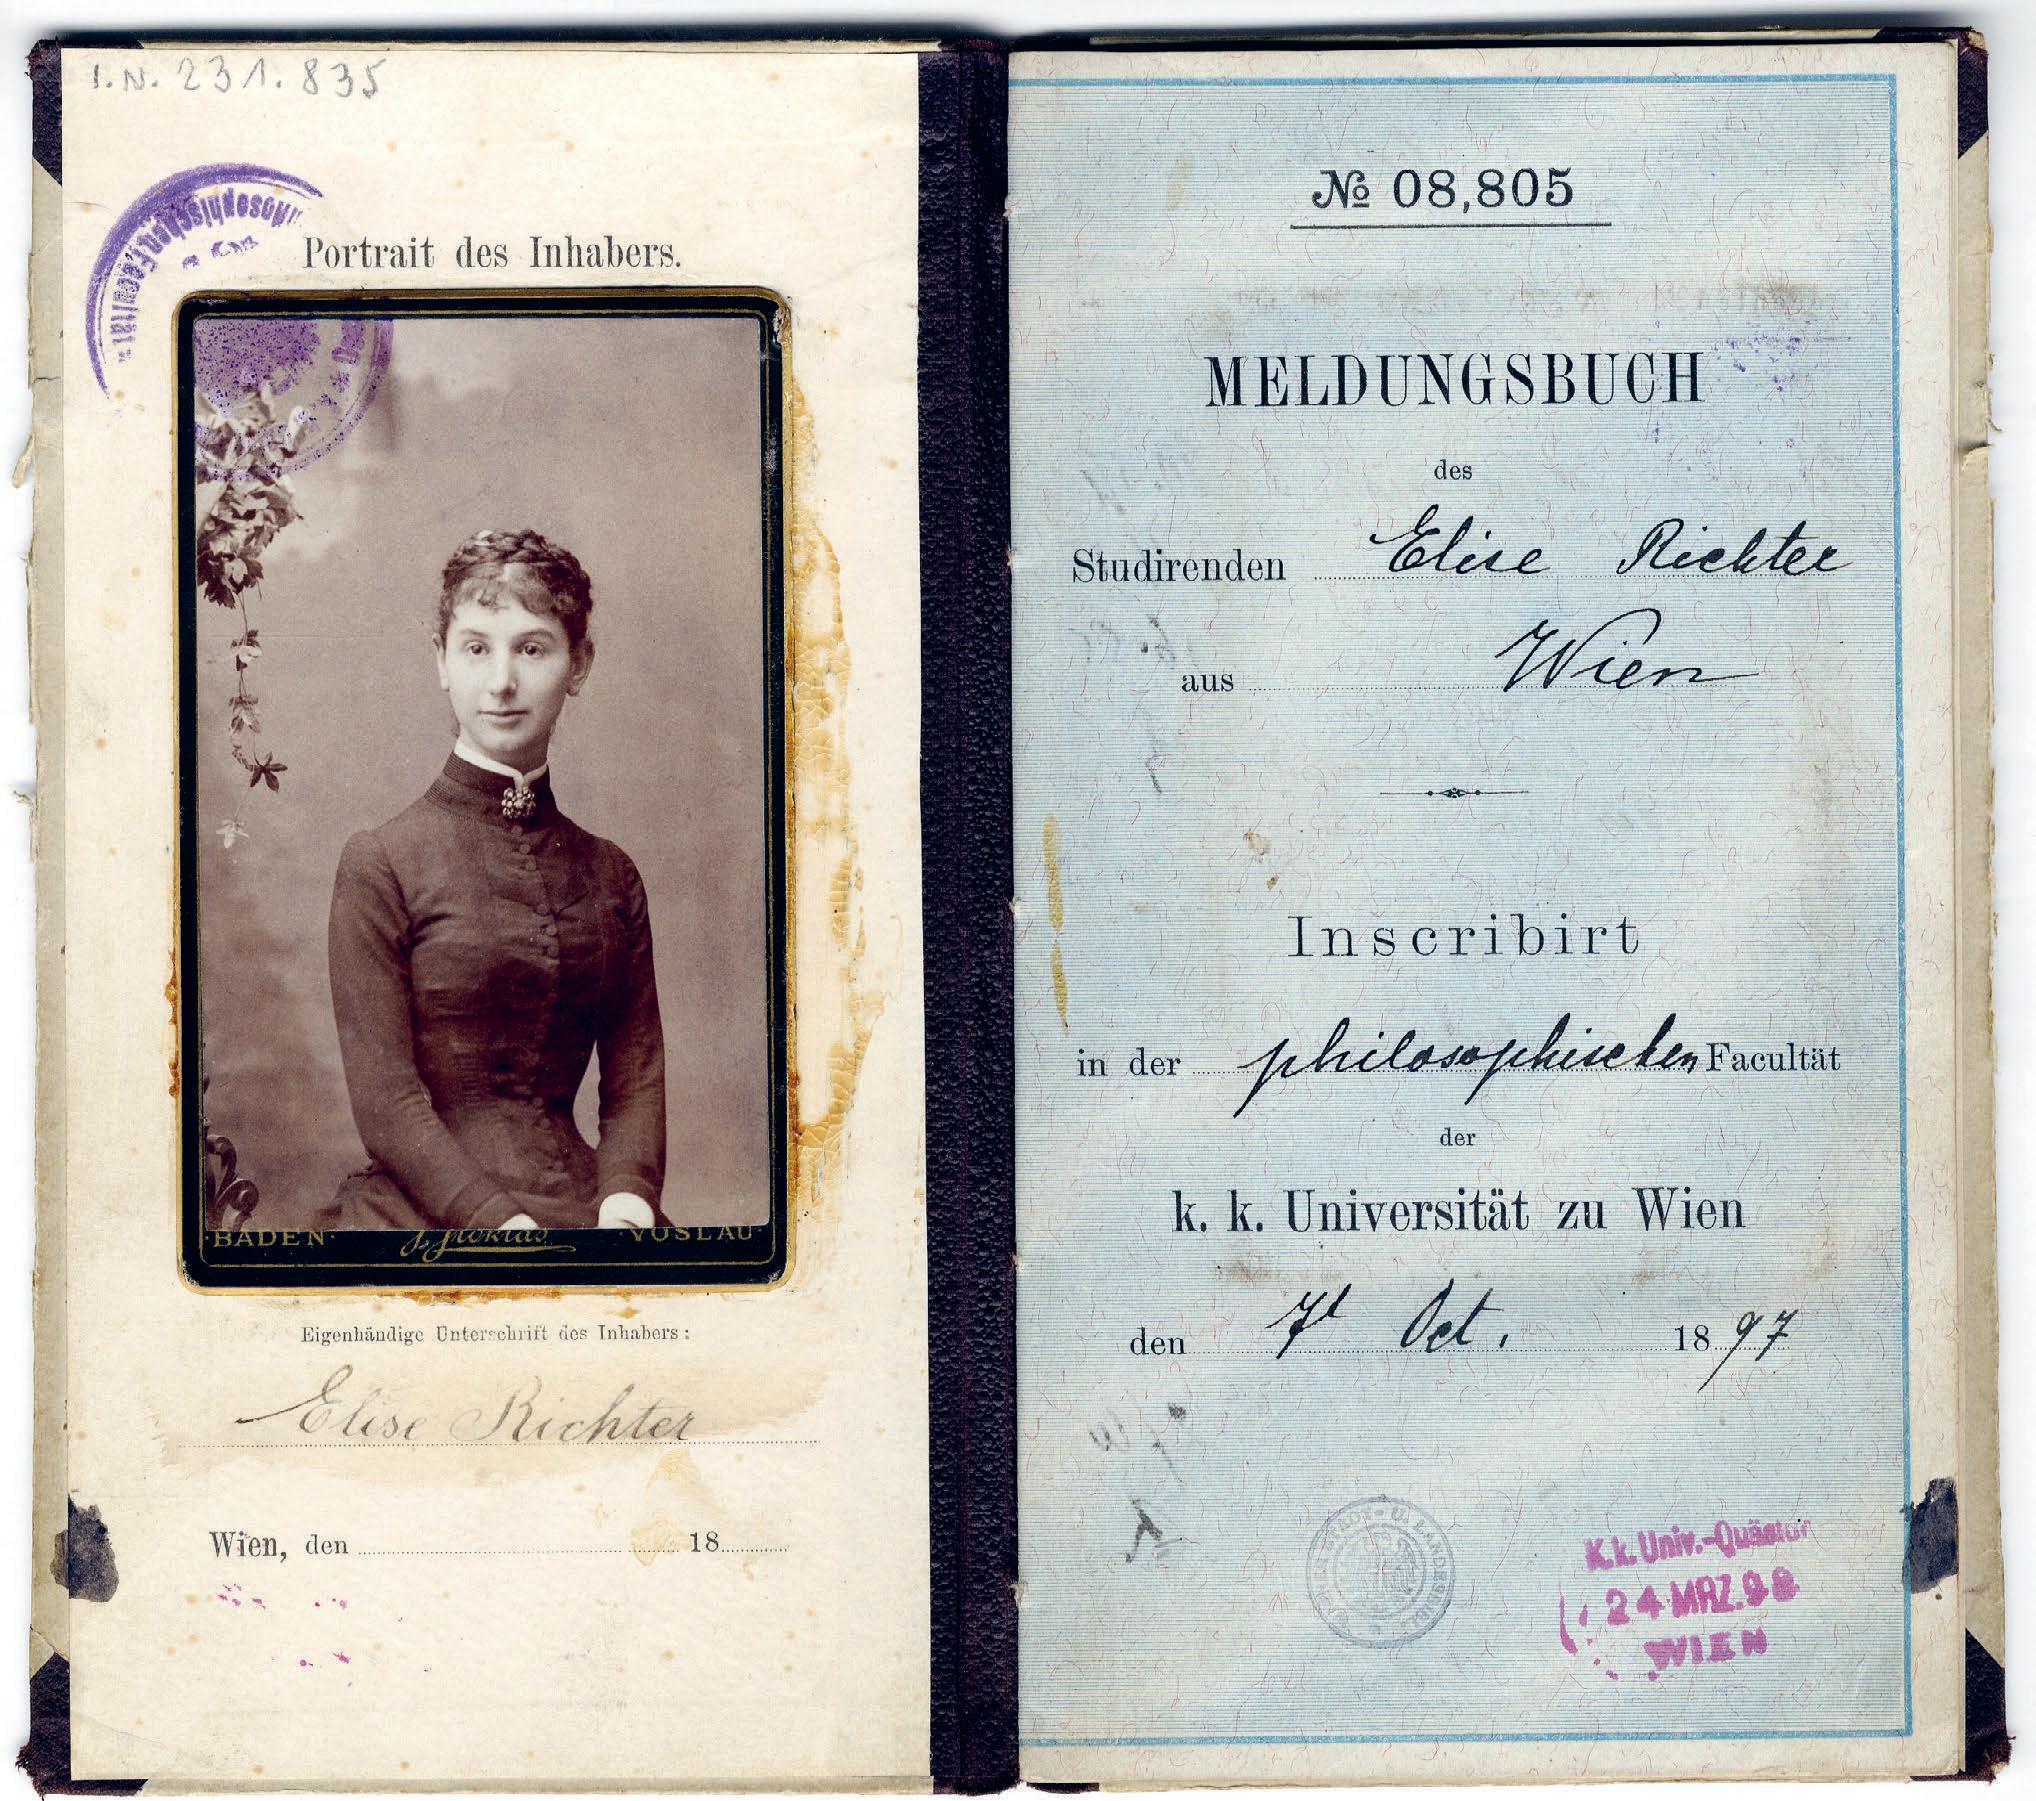 I.N. 231.835
Philosophischen Facultät
Portrait des Inhabers.
BADEN VÖSLAU
Eigenhändige Unterschrift des Inhabers:
Elise Richter
Wien, den 18
№ 08,805
MELDUNGSBUCH
des
Studirenden Elise Richter
aus Wien
Inscribirt
in der philosophischen Facultät
der
k. k. Universität zu Wien
den 7t Oct. 1897
K.k. Univ.-Quästur
24 MRZ. 98
WIEN